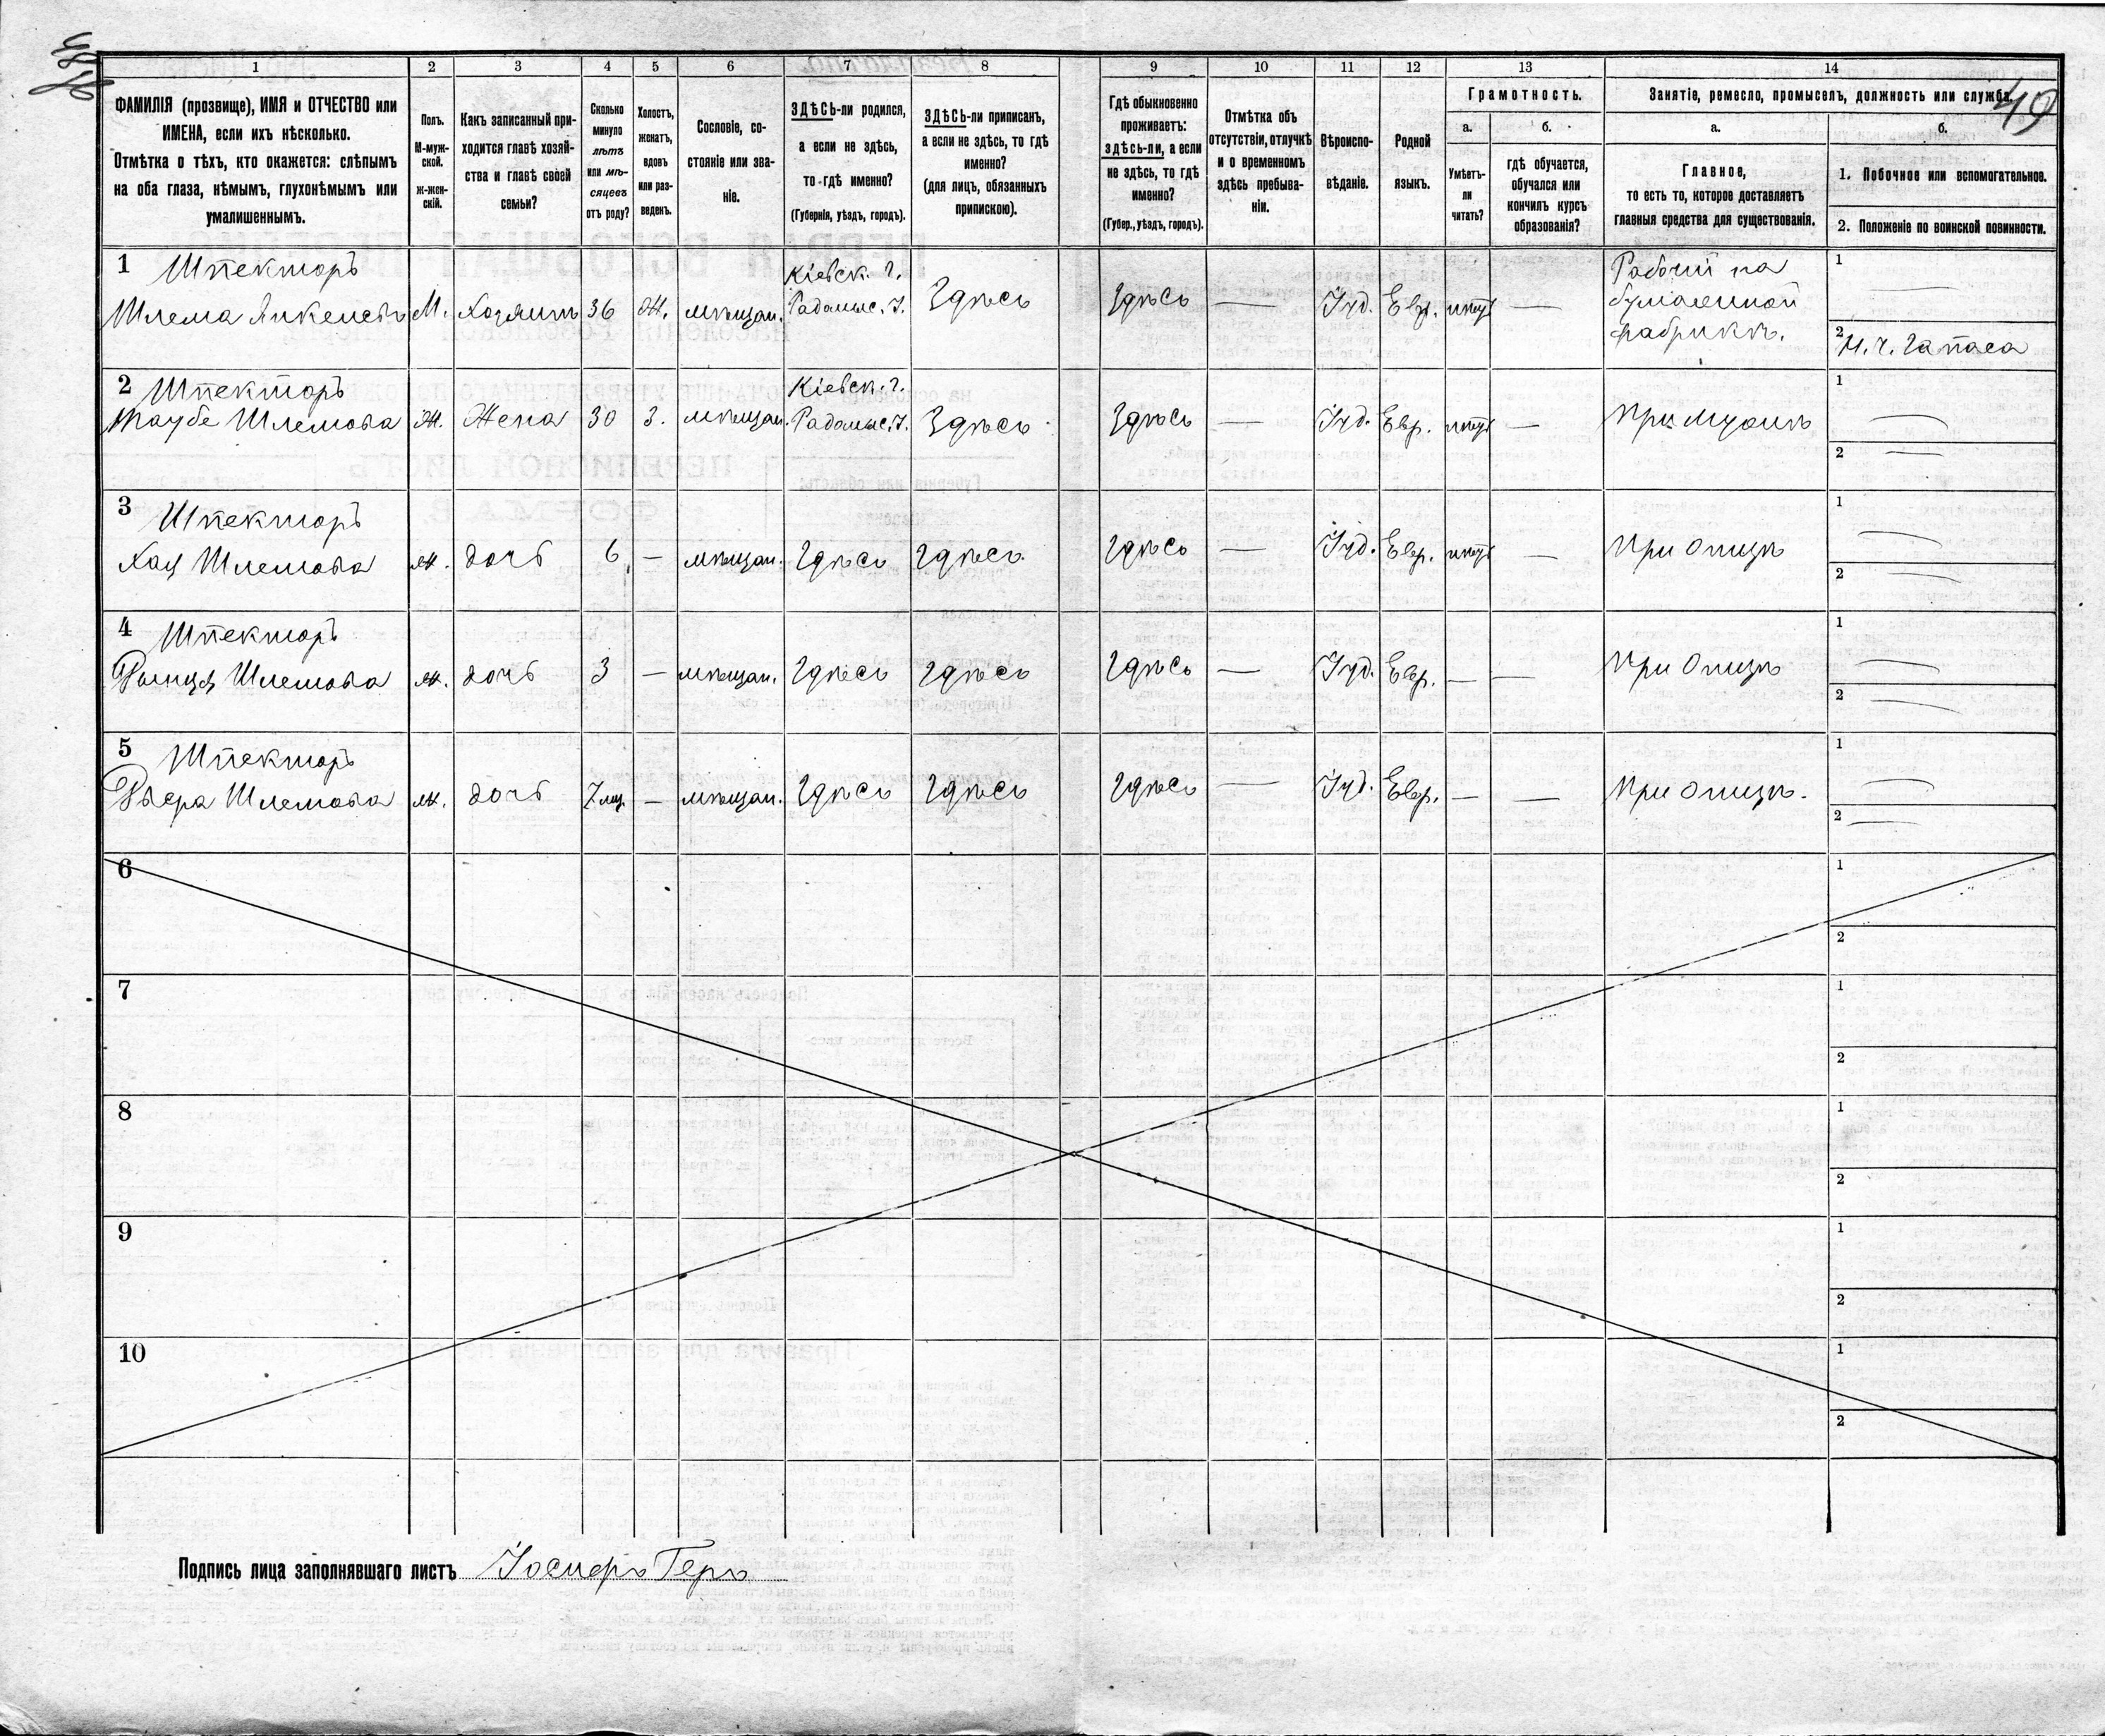 49
1 2 3 4 5 6 7 8 9 10 11 12 13 14
ФАМИЛІЯ (прозвище), ИМЯ и ОТЧЕСТВО или
ИМЕНА, если ихъ нѣсколько.
Отмѣтка о тѣхъ, кто окажется: слѣпымъ
на оба глаза, нѣмымъ, глухонѣмымъ или
умалишеннымъ.
Полъ.
М-муж-
ской.
ж-жен-
скій.
Какъ записанный при-
ходится главѣ хозяй-
ства и главѣ своей
семьи?
Сколько
минуло
лѣтъ
или мѣ-
сяцевъ
отъ роду?
Холостъ,
женатъ,
вдовъ
или раз-
веденъ.
Сословіе, со-
стояніе или зва-
ніе.
ЗДѢСЬ-ли родился,
а если не здѣсь,
то гдѣ именно?
(Губернія, уѣздъ, городъ).
ЗДѢСЬ-ли приписанъ,
а если не здѣсь, то гдѣ
именно?
(для лицъ, обязанныхъ
припискою).
Гдѣ обыкновенно
проживаетъ:
здѣсь-ли, а если
не здѣсь, то гдѣ
именно?
(Губер., уѣздъ, городъ).
Отмѣтка объ
отсутствіи, отлучкѣ
и о временномъ
здѣсь пребыва-
ніи.
Вѣроиспо-
вѣданіе.
Родной
языкъ.
Грамотность.
а.
Умѣетъ-
ли
читать?
б.
гдѣ обучается,
обучался или
кончилъ курсъ
образованія?
Занятіе, ремесло, промыселъ, должность или служба.
а.
Главное,
то есть то, которое доставляетъ
главныя средства для существованія.
б.
1. Побочное или вспомогательное.
2. Положеніе по воинской повинности.
1 Шпекторъ
Шлема Янкелевъ М. Хозяинъ 36 Ж. мѣщан. Кіевск. г. Радомыс. у. Здѣсь Здѣсь — Іуд. Евр. нѣтъ — Рабочій на
бумажной
фабрикѣ.
1 —
2 Н. ч. запаса
2 Шпекторъ
Таубе Шлемова Ж. Жена 30 З. мѣщан. Кіевск. г. Радомыс. у. Здѣсь Здѣсь — Іуд. Евр. нѣтъ — При мужѣ
1 —
2 —
3 Шпекторъ
Хая Шлемова ж. дочь 6 — мѣщан. Здѣсь Здѣсь Здѣсь — Іуд. Евр. нѣтъ — При отцѣ
1 —
2 —
4 Шпекторъ
Шлемова ж. дочь 3 — мѣщан. Здѣсь Здѣсь Здѣсь — Іуд. Евр. — — При отцѣ
1 —
2 —
5 Шпекторъ
Шлемова ж. дочь 7 мц. — мѣщан. Здѣсь Здѣсь Здѣсь — Іуд. Евр. — — При отцѣ.
1 —
2 —
6
1
2
7
1
2
8
1
2
9
1
2
10
1
2
Подпись лица заполнявшаго листъ Іосифъ Геръ